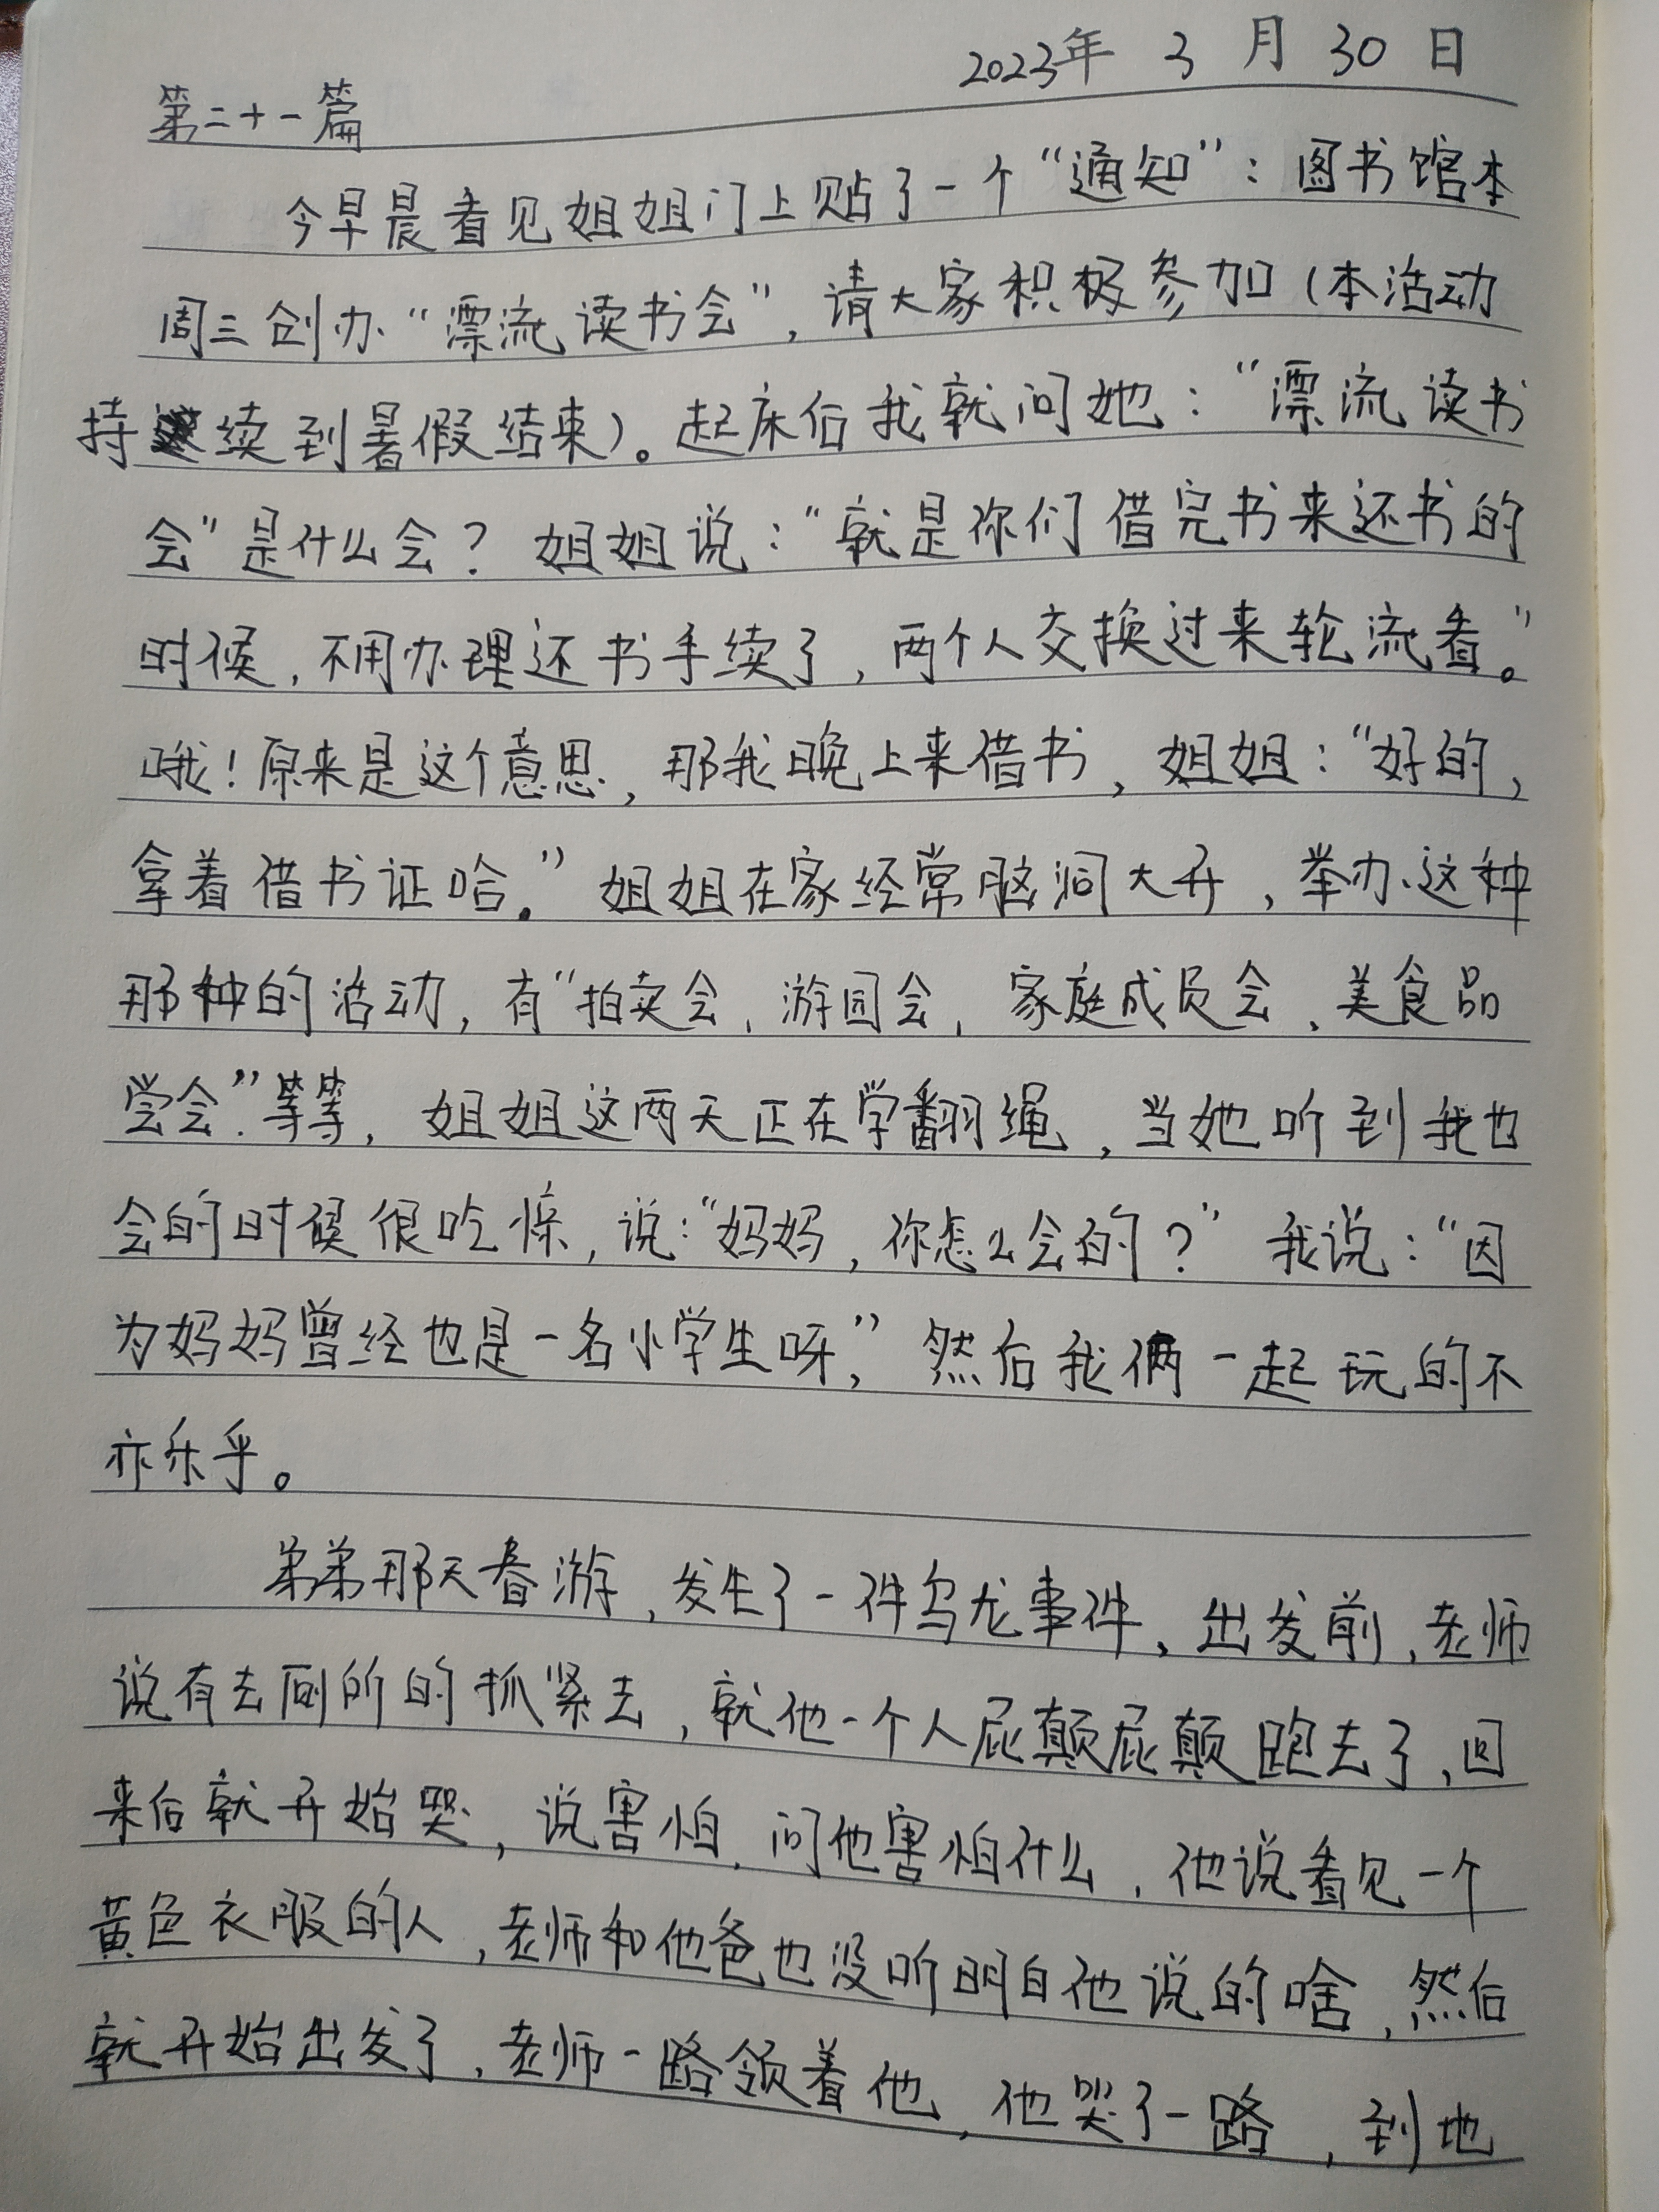 2023年 3 月 30 日
第二十一篇
今早晨看见姐姐门上贴了一个“通知”：图书馆本
周三创办“漂流读书会”，请大家积极参加（本活动
持续到暑假结束）。起床后我就问她：“漂流读书
会”是什么会？姐姐说：“就是你们借完书来还书的
时候，不用办理还书手续了，两个人交换过来轮流看。”
哦！原来是这个意思，那我晚上来借书，姐姐：“好的，
拿着借书证哈。”姐姐在家经常脑洞大开，举办这种
那种的活动，有“拍卖会，游园会，家庭成员会，美食品
尝会”等等，姐姐这两天正在学翻绳，当她听到我也
会的时候很吃惊，说：“妈妈，你怎么会的？”我说：“因
为妈妈曾经也是一名小学生呀，”然后我俩一起玩的不
亦乐乎。
弟弟那天春游，发生了一件乌龙事件，出发前，老师
说有去厕所的抓紧去，就他一个人屁颠屁颠跑去了，回
来后就开始哭，说害怕，问他害怕什么，他说看见一个
黄色衣服的人，老师和他爸也没听明白他说的啥，然后
就开始出发了，老师一路领着他，他哭了一路，到地